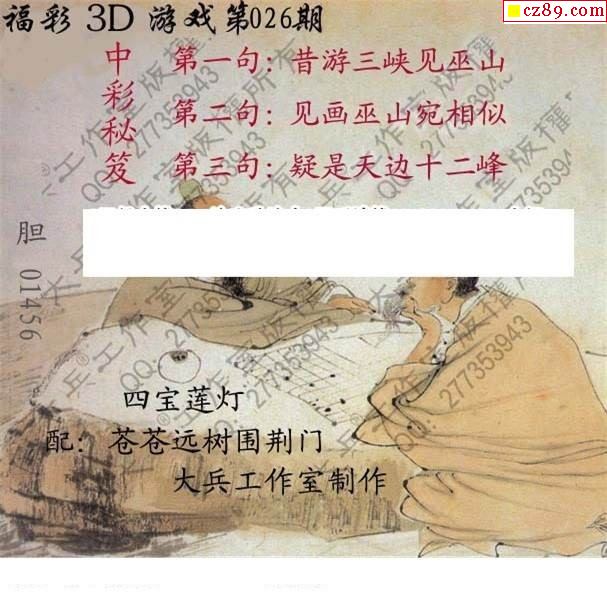 福彩 3D 游戏第026期
cz89.com
中彩秘笈
第一句：昔游三峡见巫山
第二句：见画巫山宛相似
第三句：疑是天边十二峰
胆 01456
四宝莲灯
配：苍苍远树围荆门
大兵工作室制作
大兵工作室版权所有
QQ：277353943